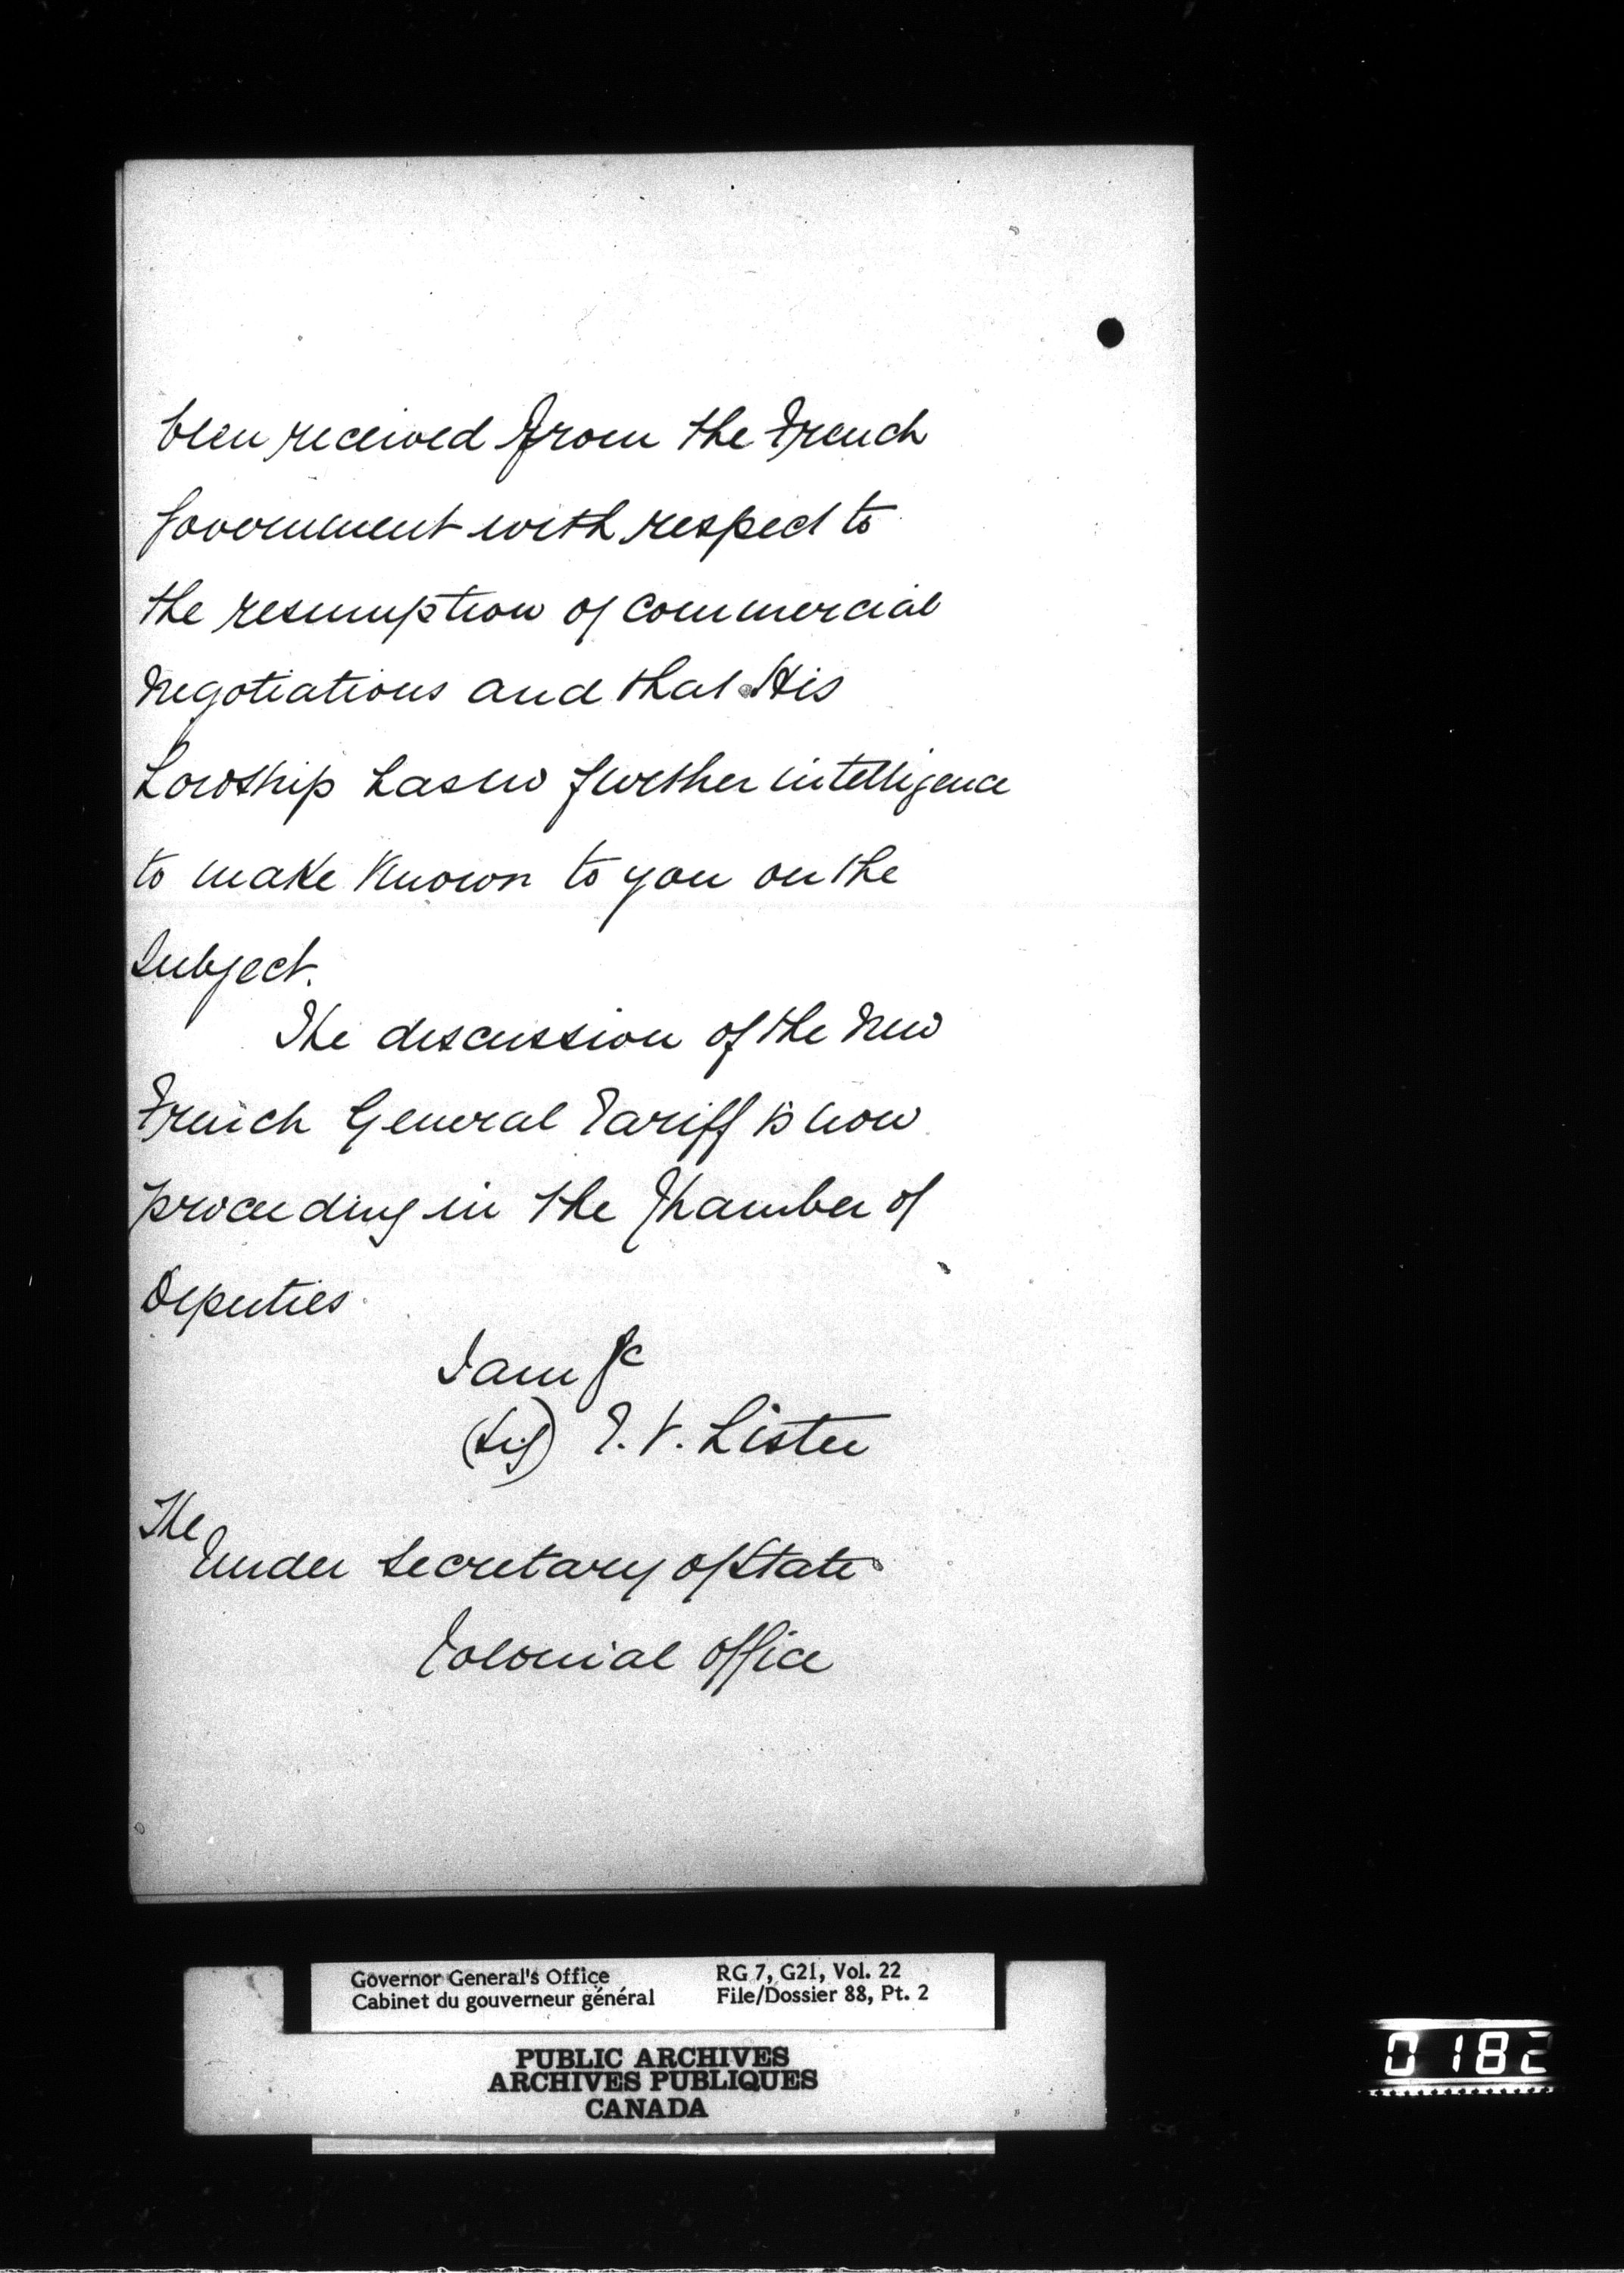 been received from the French
Government with respect to
the resumption of commercial
negotiations and that His
Lordship has no further intelligence
to make known to you on the
subject.
The discussion of the new
French General Tariff is now
proceeding in the Chamber of
Deputies.
I am &c
(sig) T. V. Lister
The
Under Secretary of State
Colonial Office
Governor General's Office
Cabinet du gouverneur général
RG 7, G21, Vol. 22
File/Dossier 88, Pt. 2
PUBLIC ARCHIVES
ARCHIVES PUBLIQUES
CANADA
0182